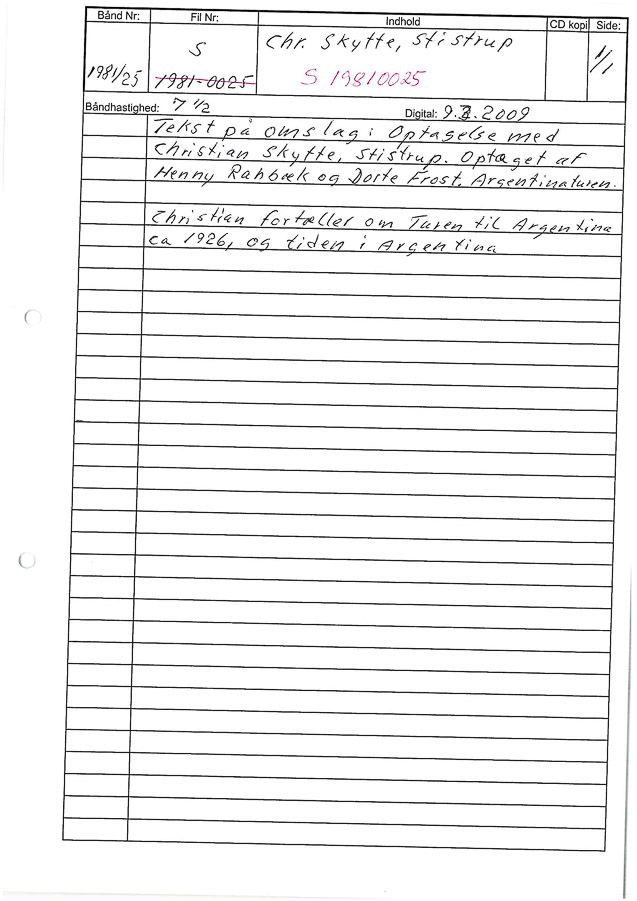 Bånd Nr: Fil Nr: Indhold CD kopi Side:
S Chr. Skytte, Stistrup 1/1
1981/25 1981-0025 S 19810025
Båndhastighed: 7 1/2 Digital: 9.2.2009
Tekst på omslag: Optagelse med
Christian Skytte, Stistrup. Optaget af
Henny Rahbæk og Dorte Frost. Argentinaturen.
Christian fortæller om Turen til Argentina
ca 1926, og tiden i Argentina